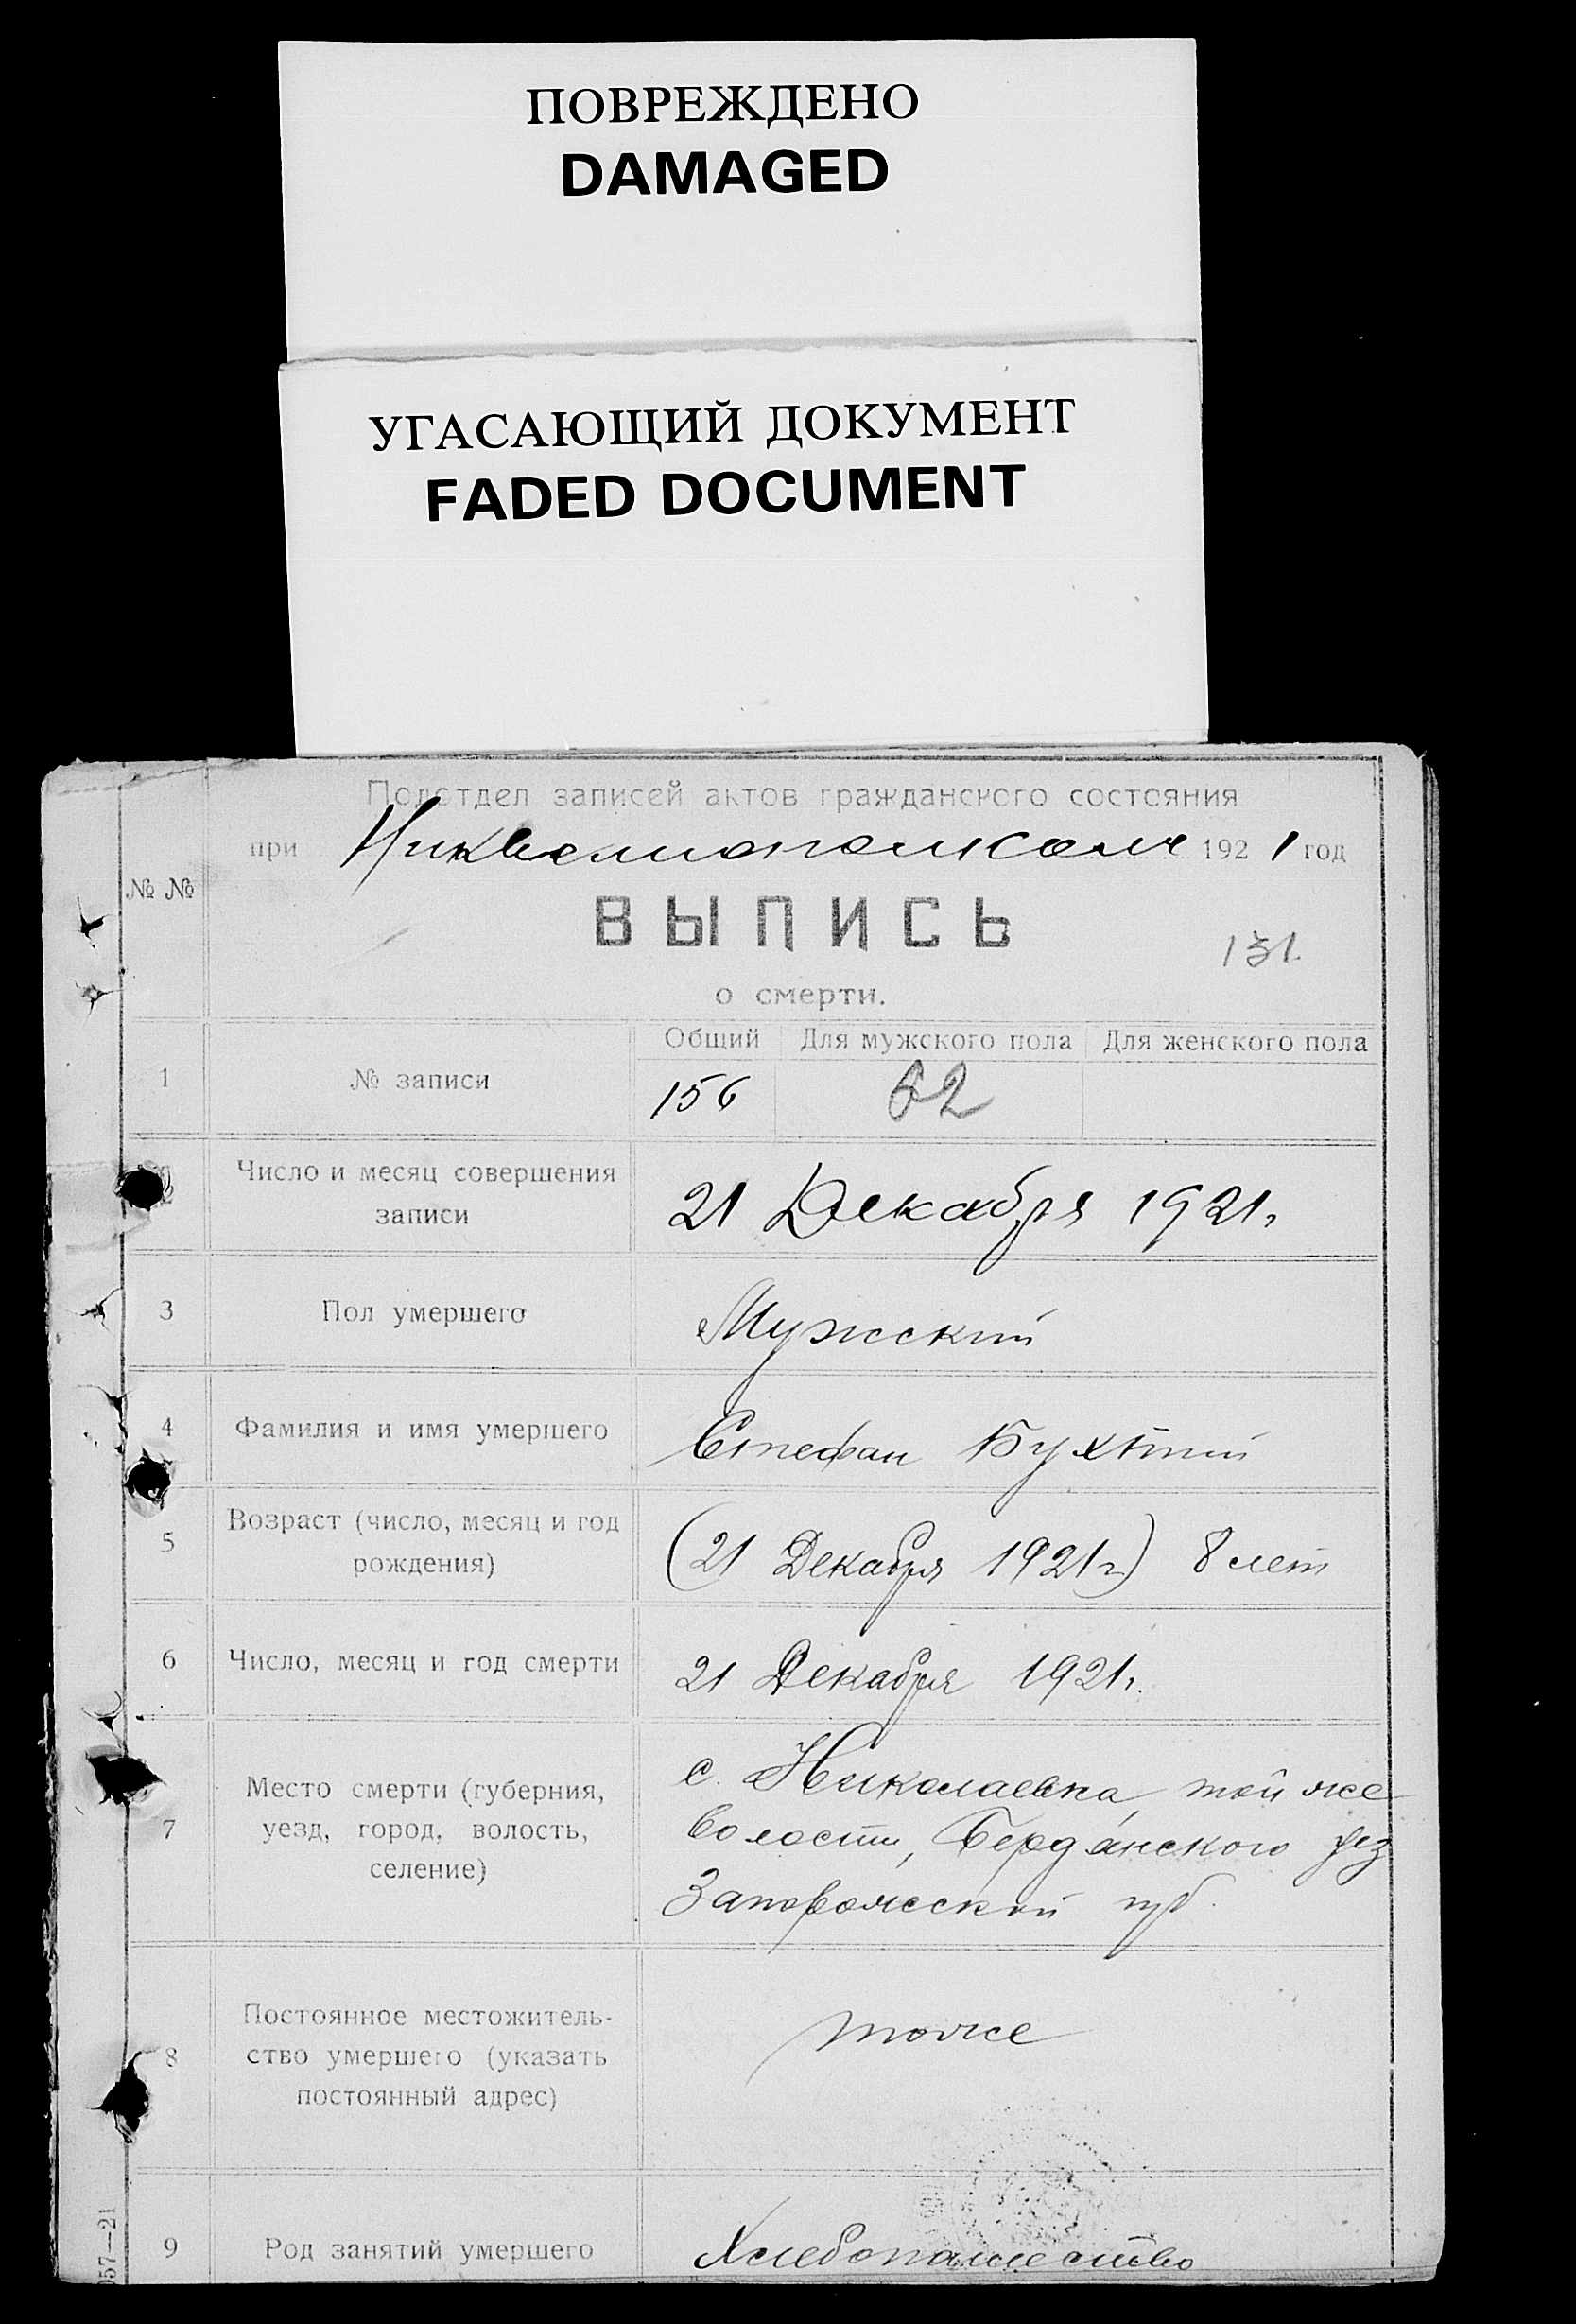 ПОВРЕЖДЕНО
DAMAGED
УГАСАЮЩИЙ ДОКУМЕНТ
FADED DOCUMENT
Подотдел записей актов гражданского состояния
при 1921 год
№ №
ВЫПИСЬ
131.
о смерти.
Общий Для мужского пола Для женского пола
1 № записи 156 62
2 Число и месяц совершения
записи 21 Декабря 1921г
3 Пол умершего Мужский
4 Фамилия и имя умершего Стефан
5 Возраст (число, месяц и год
рождения) (21 Декабря 1921г) 8 лет
6 Число, месяц и год смерти 21 Декабря 1921г.
7 Место смерти (губерния,
уезд, город, волость,
селение)
с. Николаевка, той же
волости, Бердянского уез
Запорожской губ.
8 Постоянное местожитель-
ство умершего (указать
постоянный адрес)
тоже
057—21
9 Род занятий умершего Хлебопашество